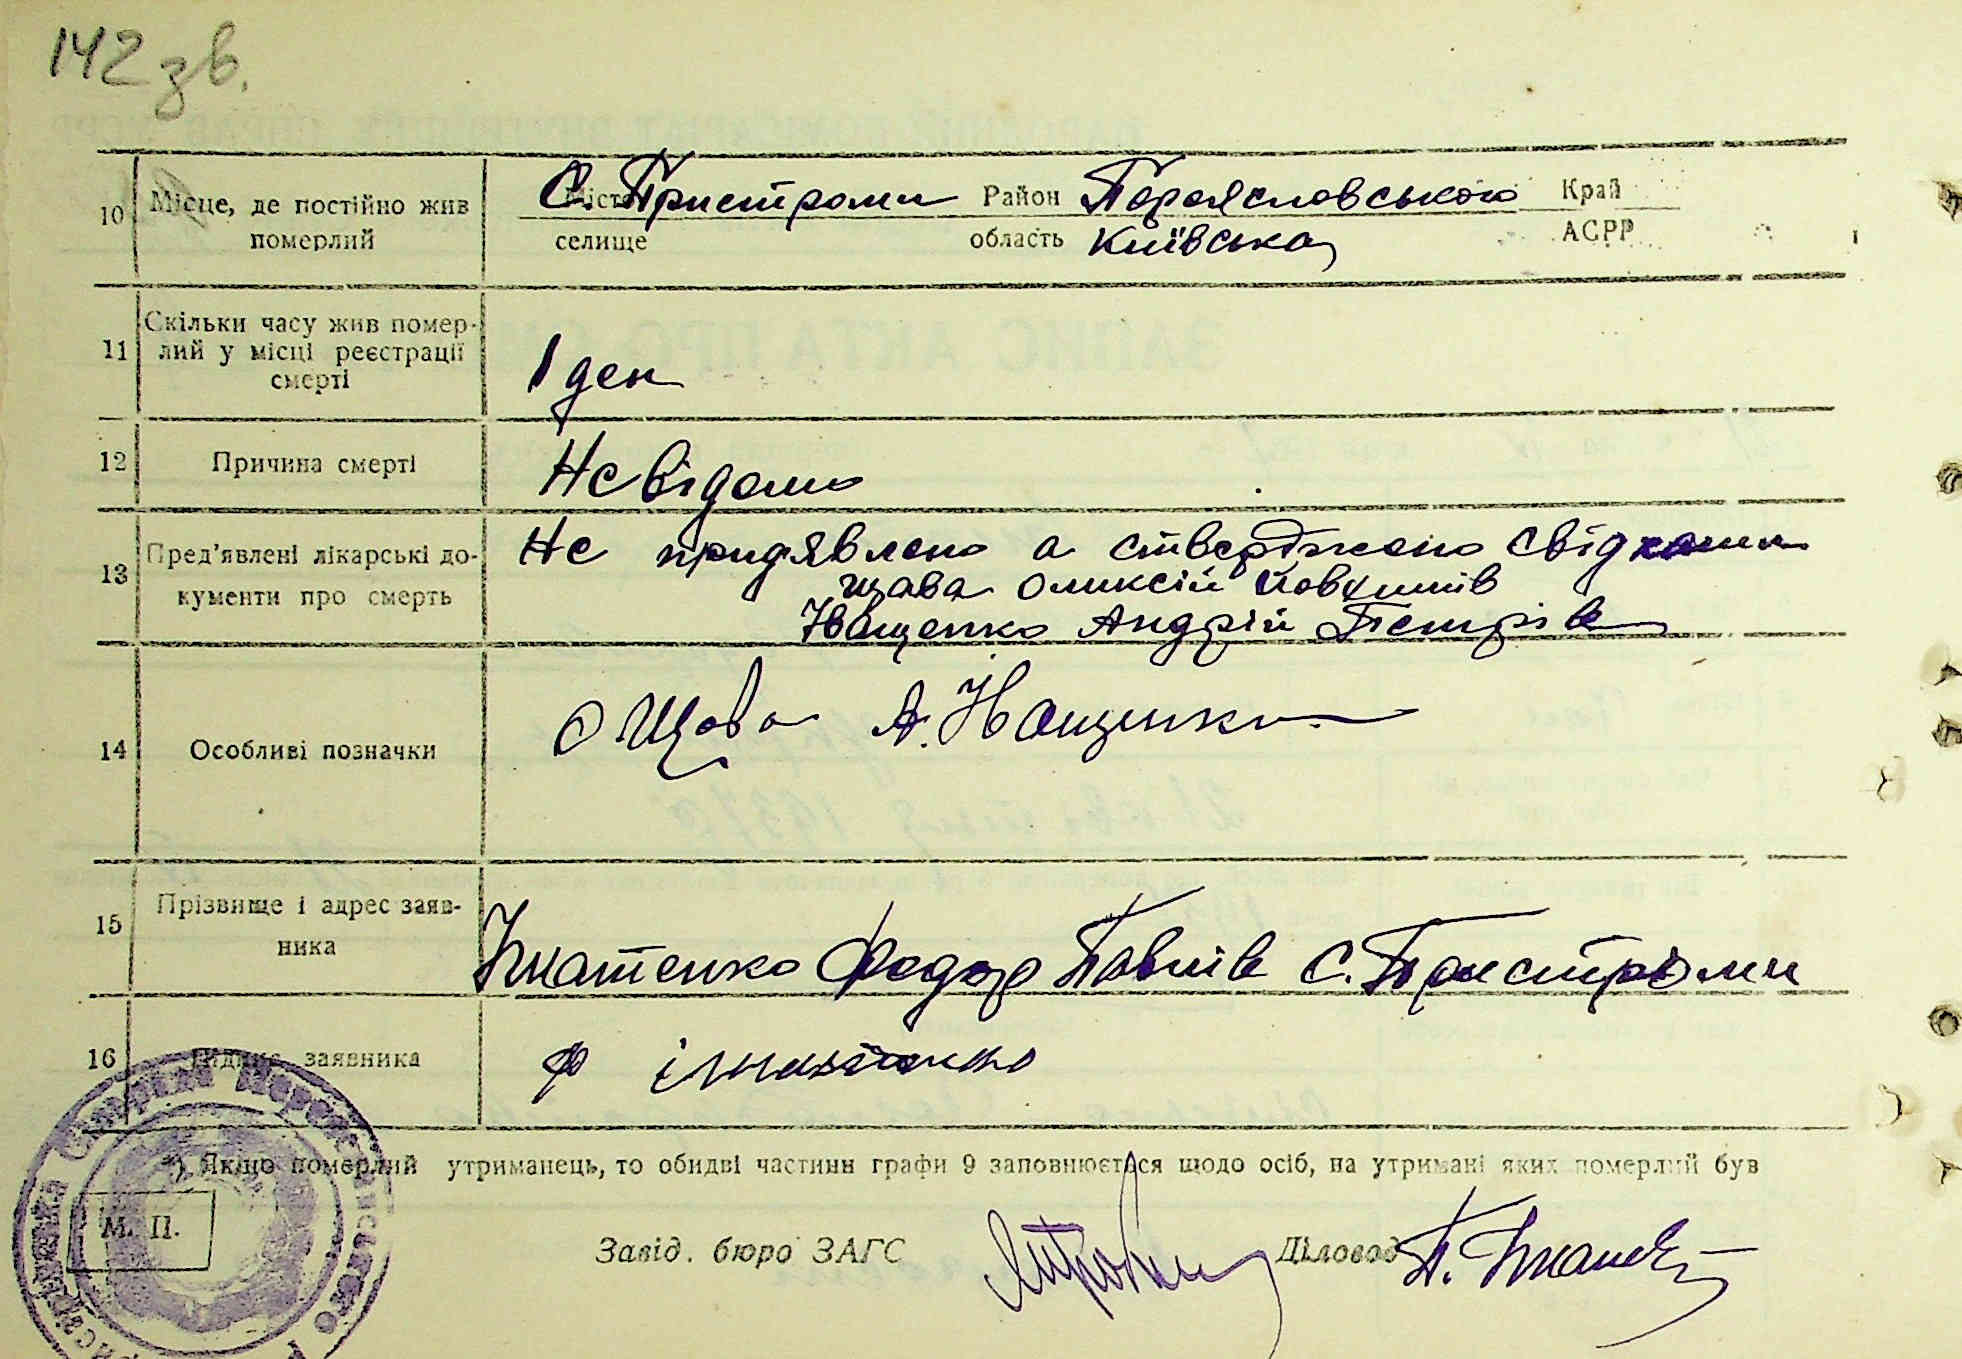 142 зв.
10 Місце, де постійно жив померлий
Місто С. Пристроми Район Пореясловського Край
селище область Київська АСРР
11 Скільки часу жив помер-
лий у місці реєстрації
смерті
1 ден
12 Причина смерті Невідома
13 Пред'явлені лікарські до-
кументи про смерть
Не придявлено а стверджено свідками
щава Оликсій
Іващенко Андрій Петрів
14 Особливі позначки
О Щава А. Іващенко
15 Прізвище і адрес заяв-
ника
Ігнатенко Федор Павлів с. Пристроми
16 Підпис заявника
Ф ігнатенко
*) Якщо померлий утриманець, то обидві частини графи 9 заповнюється щодо осіб, на утримані яких померлий був
М. П.
Завід. бюро ЗАГС Діловод